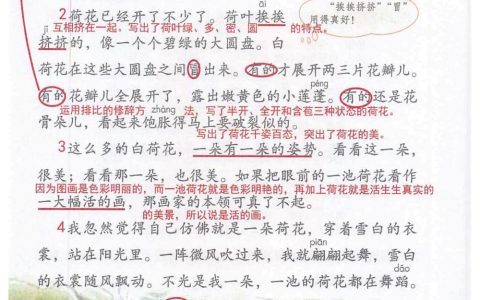 āi
"挨挨挤挤""冒"
用得真好!
2荷花已经开了不少了。荷叶挨挨
互相挤在一起。写出了荷叶绿、多、密、圆 的特点。
挤挤的,像一个个碧绿的大圆盘。白
荷花在这些大圆盘之间冒出来。有的才展开两三片花瓣儿。
péng
有的花瓣儿全展开了,露出嫩黄色的小莲蓬。有的还是花
运用排比的修辞方 zhàng 法,写了半开、全开和含苞三种状态的荷花。
骨朵儿,看起来饱胀得马上要破裂似的。
写出了荷花千姿百态,突出了荷花的美。
3这么多的白荷花,一朵有一朵的姿势。看看这一朵,
很美;看看那一朵,也很美。如果把眼前的一池荷花看作
因为图画是色彩明丽的,而一池荷花就是色彩明艳的,再加上荷花就是活生生真实的
一大幅活的画,那画家的本领可真了不起。
的美景,所以说是活的画。
4我忽然觉得自己仿佛就是一朵荷花,穿着雪白的衣
piān
裳,站在阳光里。一阵微风吹过来,我就翩翩起舞,雪白
dǎo
的衣裳随风飘动。不光是我一朵,一池的荷花都在舞蹈。